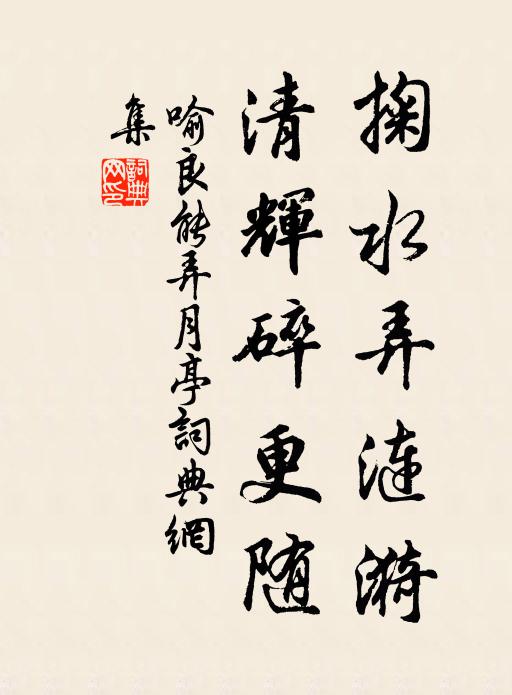 掬水弄漣漪
清輝碎更随
喻良能弄月亭詞典網
集
詞典
网印